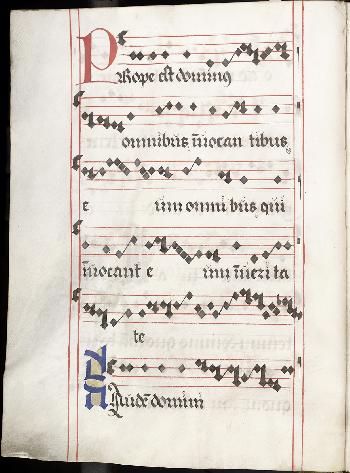 PRope est dominus
omnibus inuocan tibus
e um omni bus qui
inuocant e um in ueri ta
te
LAudem domini